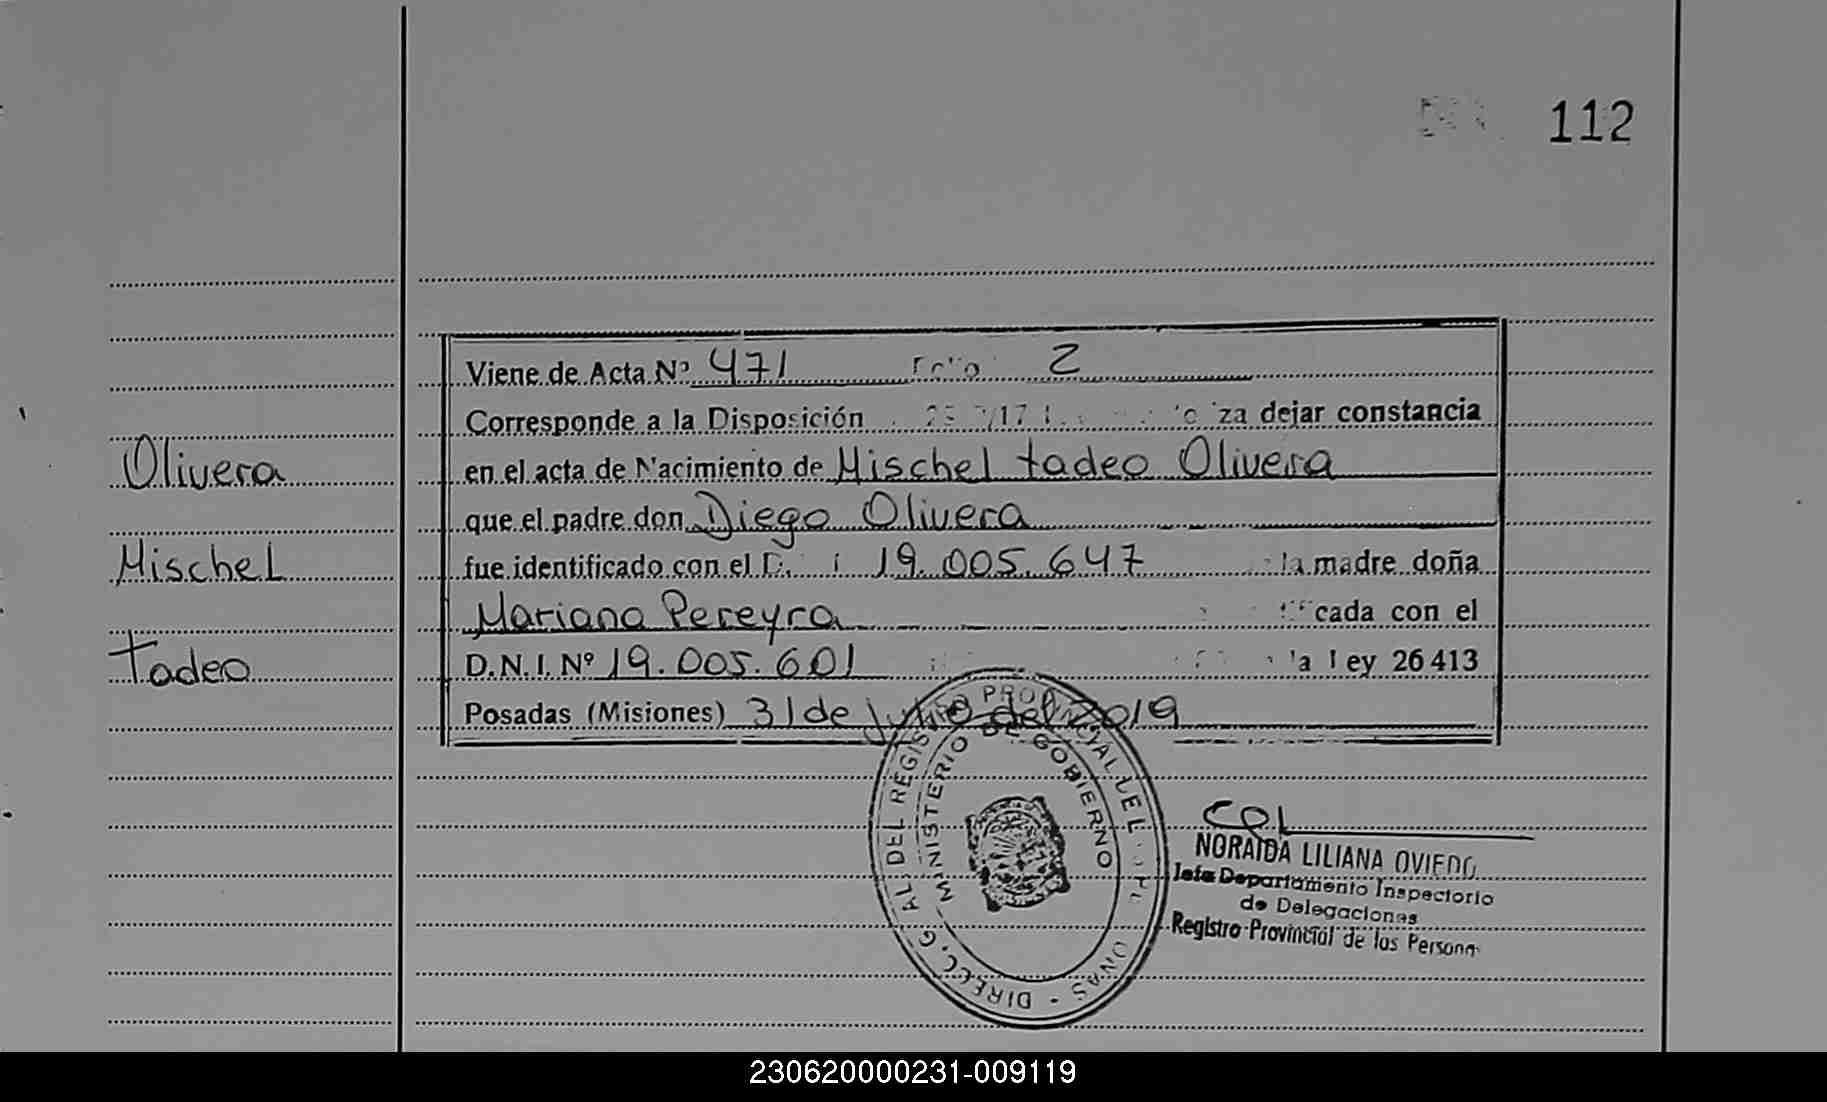 112
Viene de Acta Nº 471 Folio 2
Corresponde a la Disposición dejar constancia
Olivera
en el acta de Nacimiento de Mischel tadeo Olivera
que el padre don Diego Olivera
Mischel
fue identificado con el 19.005.647 la madre doña
Mariana Pereyra cada con el
tadeo
D.N.I. Nº 19.005.601 la Ley 26413
Posadas (Misiones) 31 de julio del 2019
DIRECC. GRAL. DEL REGISTRO PROVINCIAL DE LAS PERSONAS
MINISTERIO DE GOBIERNO
NORAIDA LILIANA OVIEDO
Jefa Departamento Inspectorio
de Delegaciones
Registro Provincial de las Personas
230620000231-009119